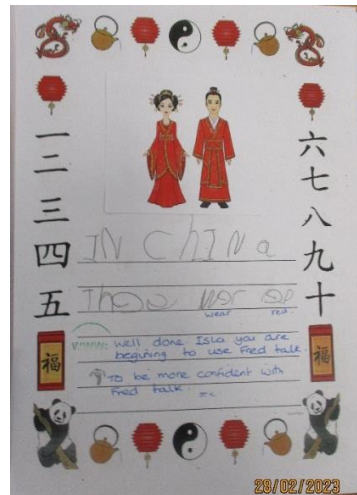 一
二
三
四
五
六
七
八
九
十
IN ChINa
They wor
wear red.
福
福
well done Isla you are
begining to use Fred talk.
To be more confident with
Fred talk.
28/02/2023